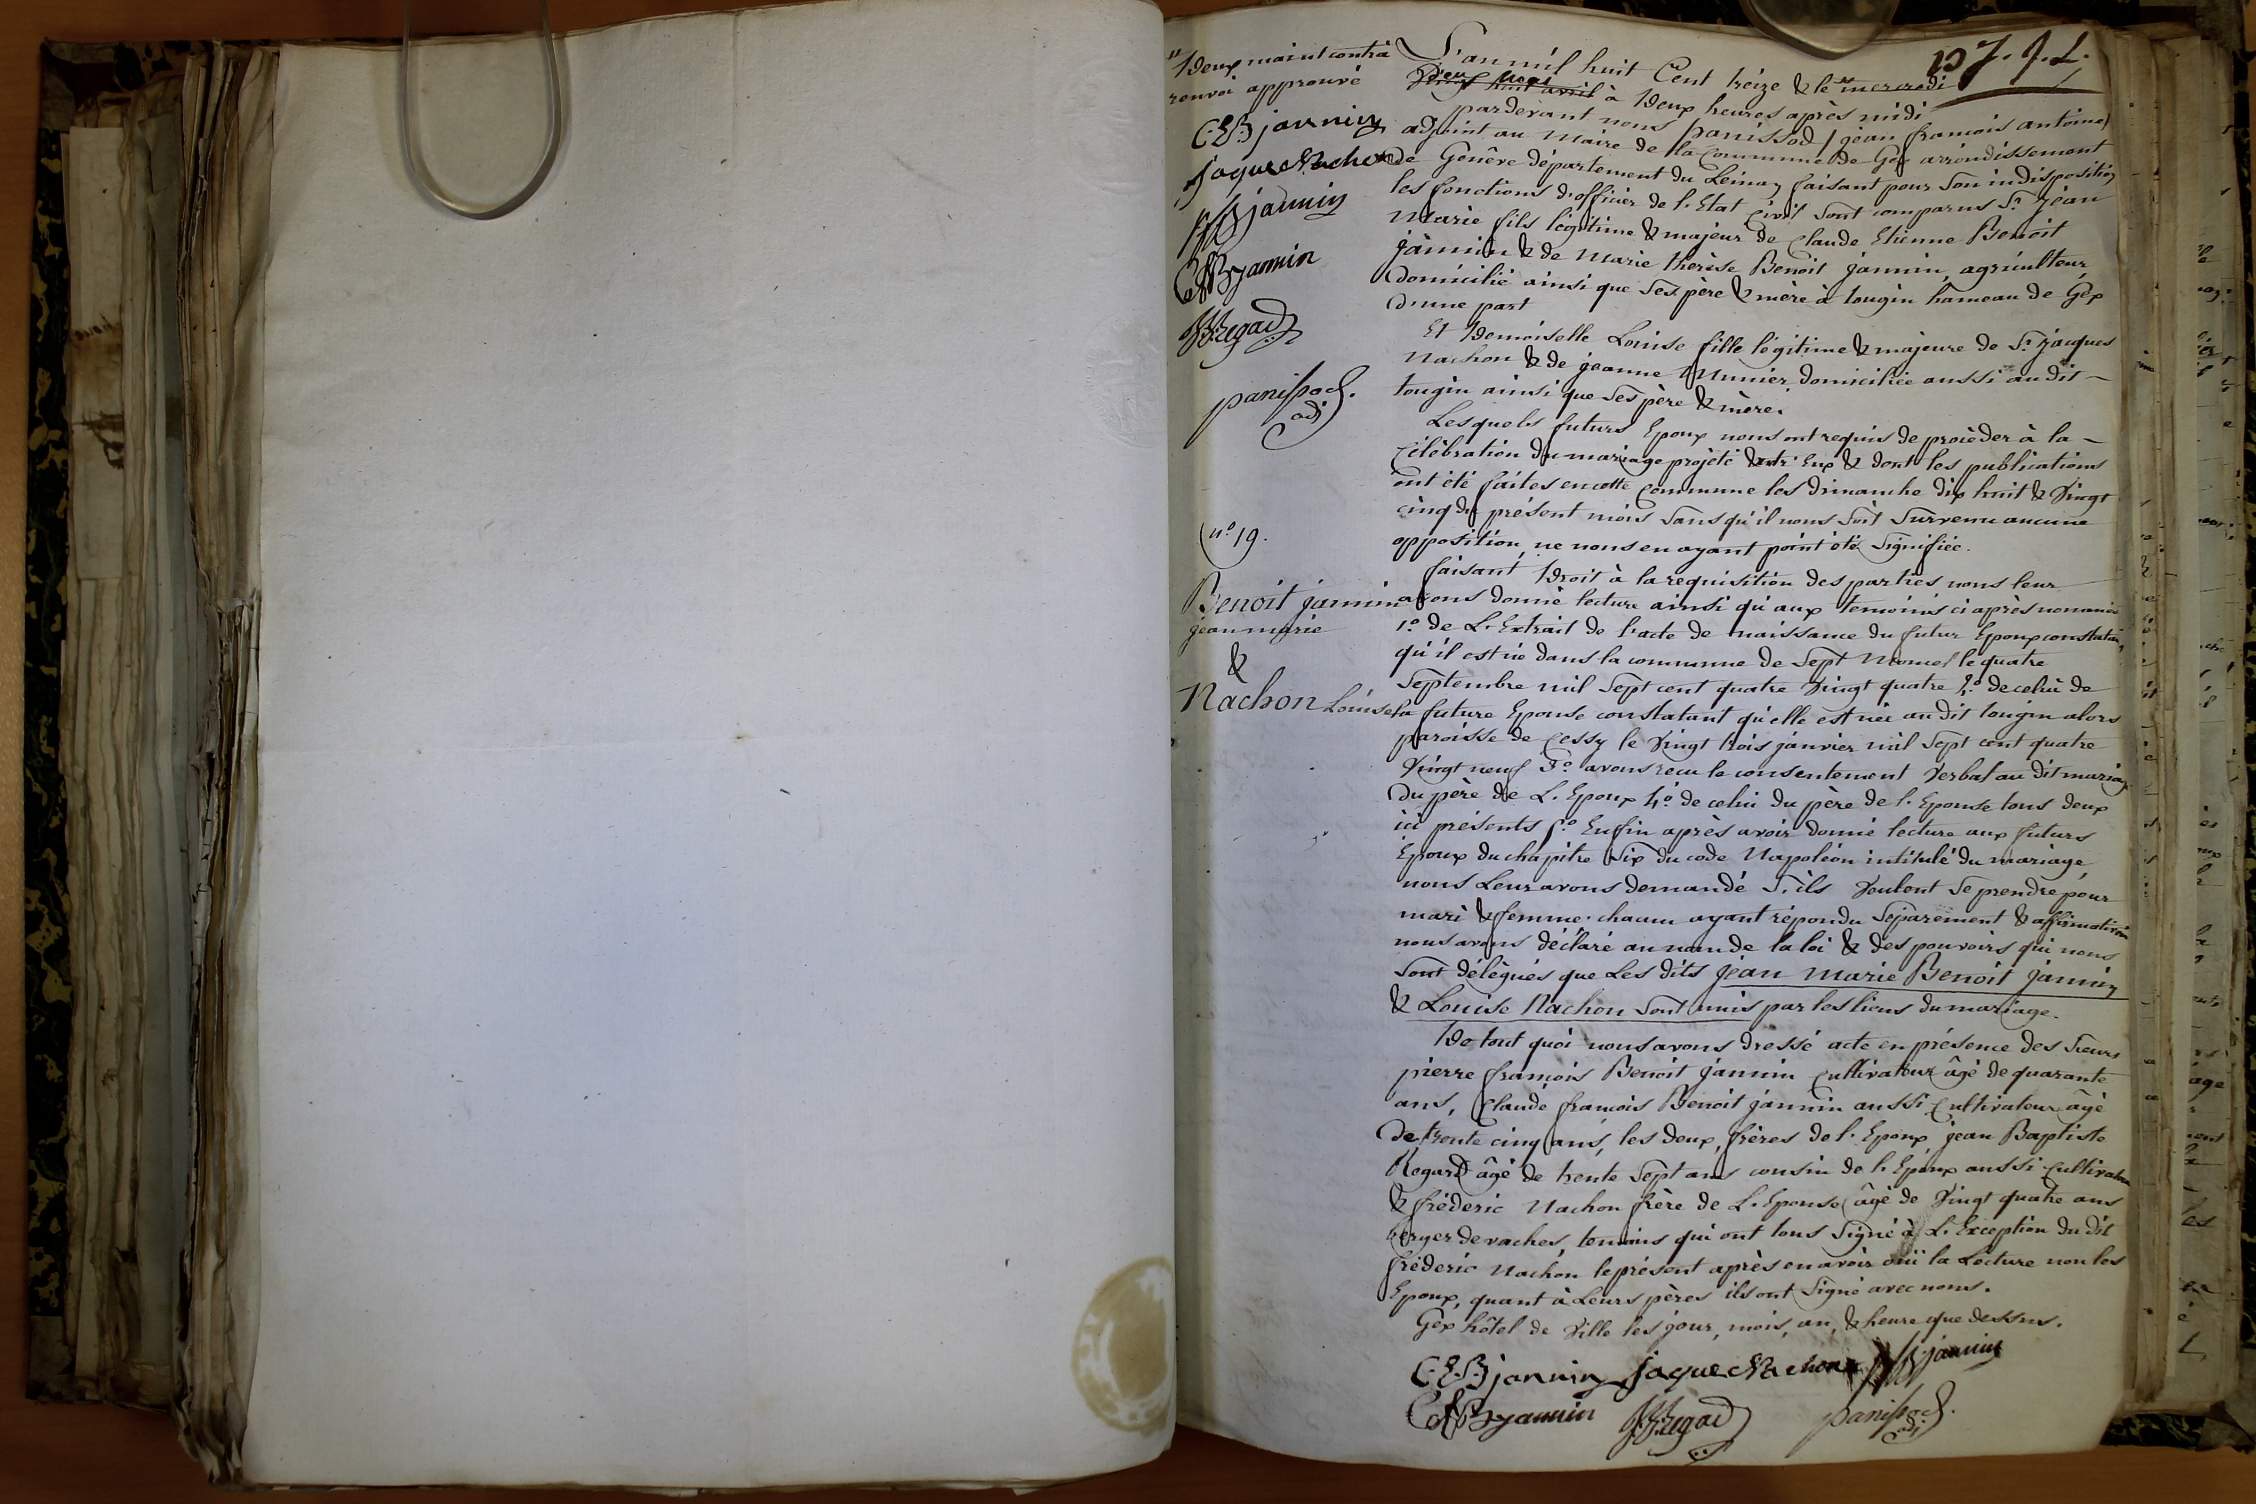 "Deux mai et contra
renvoi approuvé
C.E.B jannin
jaque Nachon
P.f.B jannin
C.f.B jannin
J.B. Regad
panissod.
adj
n.o 19.
Benoit jannin
jean marie
&
Nachon Louise
19 J. J. L.
L'an mil huit Cent treize & le " mercredi
vingt huit avril à Deux heures après midi
pardevant nous panissod jean francois antoine
adjoint au Maire de la Commune de Gex arrondissement
de Genève département du Leman faisant pour son indisposition
les fonctions d'officier de l'Etat Civil sont comparus S.r jean
Marie fils légitime & majeur de Claude Etienne Benoit
jannin & de Marie thérèse Benoit jannin, agriculteur
domicilié ainsi que ses père & mère à tougin hameau de Gex
d'une part
Et Demoiselle Louise fille légitime & majeure de S.r jacques
Nachon & de jeanne Munier domiciliée aussi au dit –
tougin ainsi que ses père & mère.
Lesquels futurs Epoux nous ont requis de procèder à la –
Célébration du mariage projeté entr'Eux & dont les publications
ont été faites en cette Commune les dimanche dix huit & vingt
cinq du présent mois sans qu'il nous soit survenu aucune
opposition, ne nous en ayant point été signifiée.
faisant Droit à la requisition des parties nous leur
avons donné lecture ainsi qu'aux temoins ci après nommés
1.o de L'Extrait de l'acte de naissance du futur Epoux constatant
qu'il est né dans la commune de Sept Moncel le quatre
Septembre mil sept cent quatre vingt quatre 2.o de celui de
la future Epouse constatant qu'elle est née au dit tougin alors
paroisse de Cessy le vingt trois janvier mil sept cent quatre
vingt neuf 3.o avons recu le consentement verbal au dit mariage
du père de L'Epoux 4.o de celui du père de l'Epouse tous deux
ici présents 5.o Enfin après avoir donné lecture aux futurs
Epoux du chapitre six du code Napoléon intitulé du mariage
nous Leur avons demandé s'ils veulent se prendre pour
mari & femme. chacun ayant répondu séparément & affirmativem
nous avons déclaré au nom de la loi & des pouvoirs qui nous
sont délégués que Les dits jean Marie Benoit jannin
& Louise Nachon sont unis par les liens du mariage.
De tout quoi nous avons dressé acte en présence des sieurs
pierre francois Benoit jannin Cultivateur âgé de quarante
ans, Claude francois Benoit jannin aussi Cultivateur âgé
de trente cinq ans, les deux frères de l'Epoux jean Baptiste
Regard âgé de trente sept ans cousin de l'Epoux aussi Cultivateur
& fréderic Nachon frère de L'Epouse âgé de vingt quatre ans
berger de vaches, temoins qui ont tous signé à L'Exception du dit
fréderic Nachon le présent après en avoir oui la Lecture non les
Epoux, quant à Leurs pères ils ont signé avec nous.
Gex hôtel de Ville les jour, mois, an, & heure que dessus.
C.E.B jannin jaque Nachon P.f.B jannin
C.f.B jannin J.B. Regad panissod.
adj